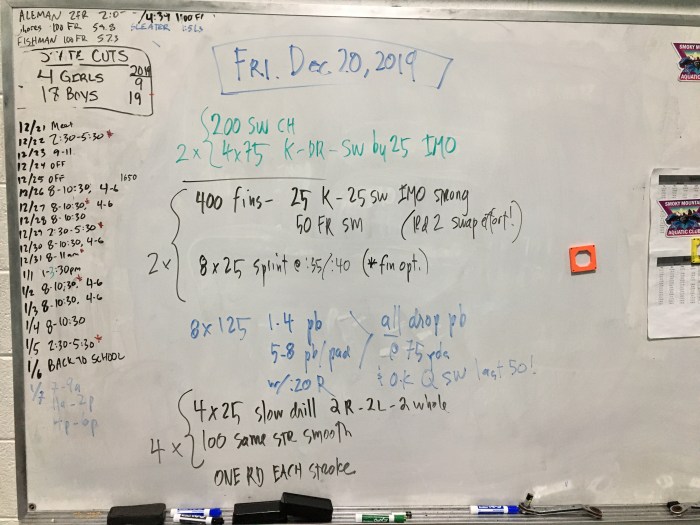 ALEMAN 2FR 2:0
/4:39 1100 Fr
100 FR 59.8
FISHMAN 100 FR 57.3
STATE CUTS
2019
4 GIRLS 9
17 BOYS 19
12/21 Meet
12/22 2:30-5:30*
12/23 9-11
12/24 OFF
12/25 OFF
1650
12/26 8-10:30, 4-6
12/27 8-10:30* 4-6
12/28 8-10:30
12/29 2:30-5:30*
12/30 8-10:30, 4-6
12/31 8-11am*
1/1 1-3:30pm
1/2 8-10:30* 4-6
1/3 8-10:30, 4-6
1/4 8-10:30
1/5 2:30-5:30*
1/6 BACK TO SCHOOL
1/7
FRI. Dec. 20, 2019
200 SW CH
2x 4x75 K-DR-SW by 25 IMO
400 fins- 25 K-25 SW IMO strong
50 FR SM (rd 2 swap effort!)
2x
8x25 Sprint @ :35/:40 (*fin opt.)
8x125 1-4 pb all drop pb
5-8 pb/pad @ 75 yds
w/:20 R & O.K Q SW last 50!
4x25 slow drill 2R-2L-2 whole
4x 100 same STR smooth
ONE RD EACH Stroke
SMOKY M
AQUATIC
SMOKY MOUNTA
AQUATIC CLUB